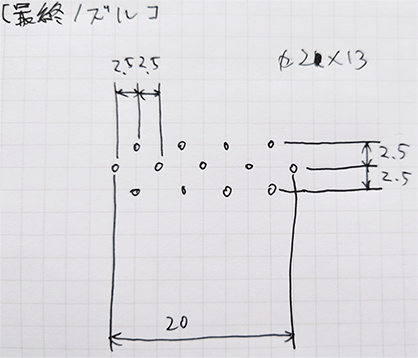 [最終ノズル]
2.5 2.5
2 × 13
2.5
2.5
20